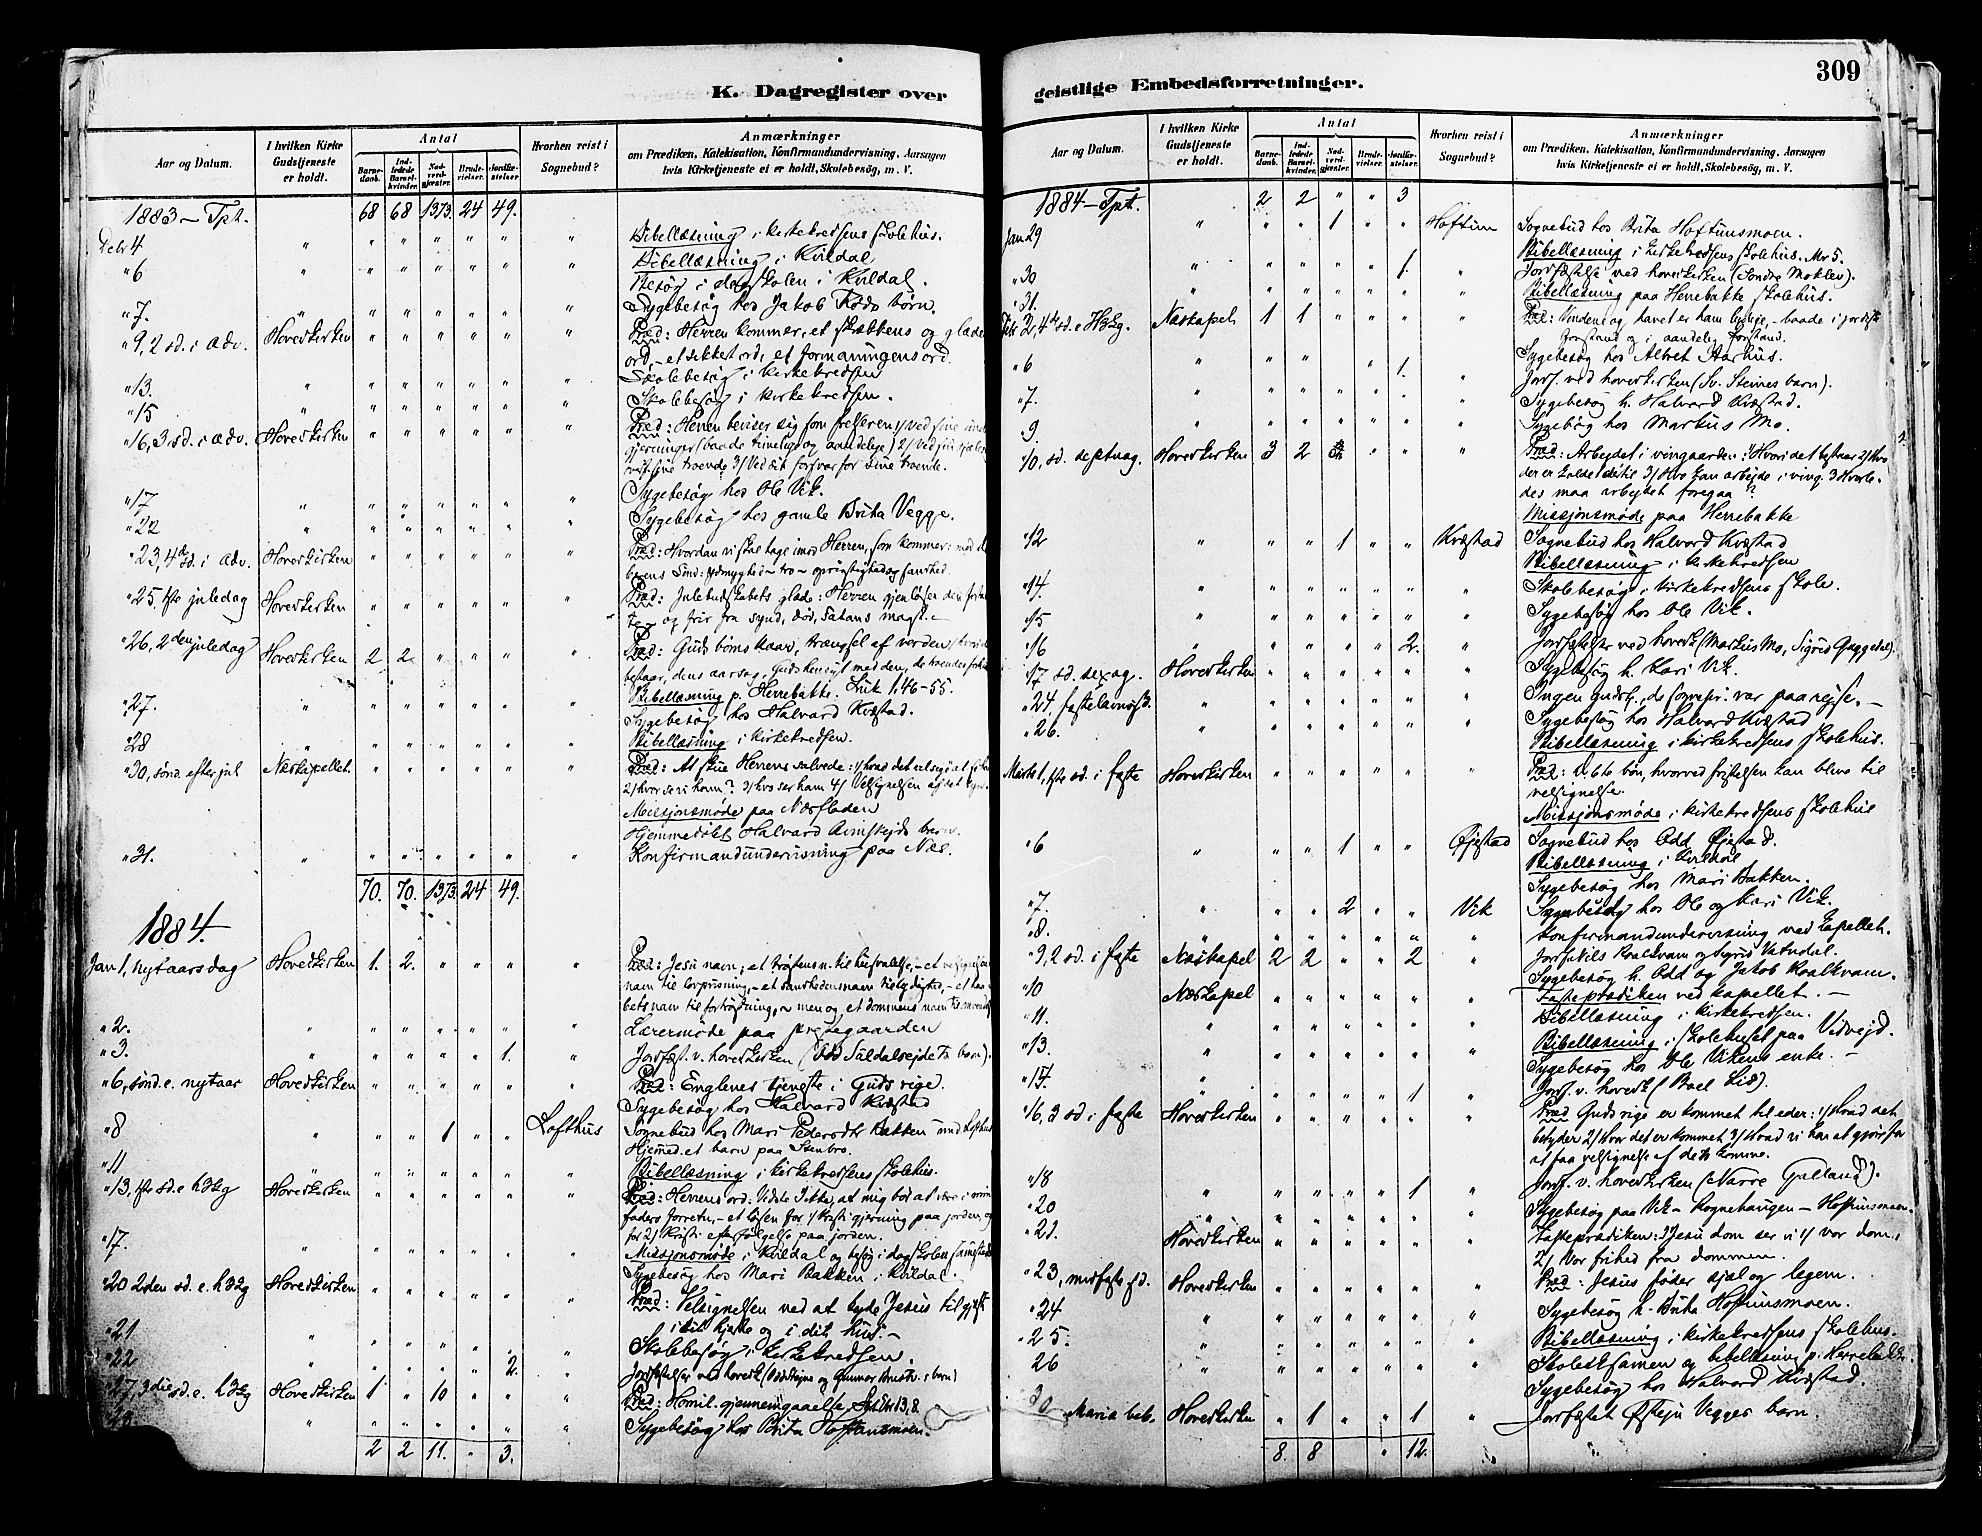 309
K. Dagregister over
geistlige Embedsforretninger.
Aar og Datum.
I hvilken Kirke Gudstjeneste er holdt.
Antal
Barnedaab.
Indledede Barselkvinder.
Nadverdgjæster.
Brudevielser.
Jordfæstelser.
Hvorhen reist i Sognebud?
Anmærkninger
om Prædiken, Katekisation, Konfirmandundervisning, Aarsagen
hvis Kirketjeneste ei er holdt, Skolebesøg, m. V.
1883 - Tpt. " 68 68 1373. 24 49. "
Debr 4 " " " " " " " Bibellæsning i kirkekredsens skolehus.
" 6 " " " " " " " Bibellæsning i Kvildal
Besøg i dagskolen i Kvildal.
" 7. " " " " " " " Sygebesøg hos Jakob børn.
" 9, 2 sd. i adv. Hovedkirken " " " " " " Præd: Herren kommer, et skrækkens og glædes
ord, - et sikkert ord, et formaningens ord.
" 13. " " " " " " " Skolebesøg i kirkekredsen
" 15 " " " " " " " Skolebesøg i kirkekredsen.
" 16, 3 sd. i adv. Hovedkirken " " " " " " Præd: Herren beviser sig som frelseren 1/ ved sine
gjerninger (baade timelige og aandelige) 2/ Ved
troende 3/ Ved sit forsvar for sine troende.
" 17 " " " " " " " Sygebesøg hos Ole Vik.
" 22 " " " " " " " Sygebesøg hos gamle Brita Vegge.
" 23, 4de sd. i adv. Hovedkirken " " " " " " Præd: Hvordan vi skal tage imod Herren, som kommer: med
ydmyghed - tro - oprigtighed og sandhed.
" 25. 1ste juledag Hovedkirken " " " " " " Præd: Julebudskabets glæde: Herren gjenløser
og frir fra synd, død, Satans magt. -
" 26, 2den juledag Hovedkirken 2 2 " " " " Præd: Guds børns kaar, trængsel af verden,
bestaar, dens aarsag, Guds hensigt med den, de troendes
Bibellæsning p. Herrebakke. Luk 1. 46-55.
" 27. " " " " " " " Sygebesøg hos Halvard Kvæstad.
" 28 " " " " " " " Bibellæsning i kirkekredsen.
" 30, sønd. efter jul Næskapellet. " " " " " " Præd: At skue Herrens salvede: 1/ hvad det vil sige
2/ hvor se vi ham? 3/ hvo ser ham 4/ Velsignelsen af det
Missjonsmøde paa Næsfladen
Hjemmedøbt Halvard barn.
" 31. " " " " " " " Konfirmandundervisning paa Næs.
70. 70. 1373. 24 49.
1884.
Jan 1, nytaarsdag Hovedkirken 1. 2. " " " " Præd: Jesu navn; et frelsens n. til
navn til lovprisning, - et sandhedens navn til lydighed, -
bets navn til fortrøstning, men og et dommens navn
" 2. " " " " " " " Lærermøde paa prestegaarden
" 3. " " " " " 1. " Jordfæst. v. hovedkirken (Odd Suldalsejdets barn).
" 6, sønd. e. nytaar Hovedkirken " " " " " " Præd: Englenes tjeneste i Guds rige.
Sygebesøg hos Halvard Kvæstad
" 8 " " " 1 " " Lofthus Sognebud hos Mari Pedersdtr Bakken
Hjemmed. et barn paa Stenbro.
" 11 " " " " " " " Bibellæsning i kirkekredsens skolehus.
" 13, 1ste sd. e. h3kg Hovedkirken " " " " " " Præd: Herrens ord: Vidste I ikke, at mig bør at være i min
faders forretn. - et løsen for 1/ Kristi gjerning paa jorden, og
for 2/ Kristi efterfølgelse paa jorden.
" 17. " " " " " " " Missjonsmøde i Kvildal og besøg i dagskolen
Sygebesøg hos Mari Bakken i Kvildal.
" 20 2den sd. e. h3kg Hovedkirken " " " " " " Præd: Velsignelsen ved at byde Jesus til gjest
i dit hjerte og i dit hus. -
" 21 " " " " " " " Skolebesøg i kirkekredsen.
" 22 " " " " " 2. " Jordfæstelser ved hovedk.
" 27, 3die sd. e. h3kg Hovedkirken 1 " 10 " " " Præd: Homil. gjennemgaaelse 13, 8.
" " " " " " " Sygebesøg hos Brita Hoftunsmoen.
2 2 11. " 3.
Aar og Datum.
I hvilken Kirke Gudstjeneste er holdt.
Antal
Barnedaab.
Indledede Barselkvinder.
Nadverdgjæster.
Brudevielser.
Jordfæstelser.
Hvorhen reist i Sognebud?
Anmærkninger
om Prædiken, Katekisation, Konfirmandundervisning, Aarsagen
hvis Kirketjeneste ei er holdt, Skolebesøg, m. V.
1884 - Tpt. 2 2 " " 3
Jan 29 " " " 1 " " Hoftun Sognebud hos Brita Hoftunsmoen.
Bibellæsning i kirkekredsens skolehus. Mr 5.
" 30 " " " " " 1. " Jordfæstelse ved hovedkirken (Sondre Moklev).
" 31. " " " " " " " Bibellæsning paa Herrebakke skolehus.
Febr 2, 4de sd. e. H3kg. Næskapel 1 1 " " " " Præd: Vindene og havet er ham lydige, - baade i jordisk
forstand og i aandelig forstand.
" 6 " " " " 1. " Sygebesøg hos Albret Aarhus.
Jordf. ved hovedkirken (Sv. Steines barn).
" 7. " " " " " " Sygebesøg h. Halvard Kvæstad.
" 9. " " " " " " Sygebesøg hos Markus Mo.
" 10, sd. septuag. Hovedkirken 3 2 " " " Præd: Arbejdet i vingaarden: 1/ Hvori det bestaar 2/ Hvo
der er kaldede dertil 3/ Hvo kan arbejde i ving. 3 Hvorle-
des maa arbejdet foregaa?
Missjonsmøde paa Herrebakke
" 12 " " " 1 " " Kvæstad Sognebud hos Halvard Kvæstad
Bibellæsning i kirkekredsen
" 14. " " " " " " Skolebesøg i kirkekredsens skole.
" 15 " " " " " " Sygebesøg hos Ole Vik.
" 16 " " " " 2. " Jordfæstelser ved hovedk (Markus Mo, Sigrid Guggedal).
" 17 sd. sexag. Hovedkirken " " " " " " Sygebesøg h. Kari Vik.
" 24. fastelavnssd. " " " " " " " Ingen gudstj., da sognepr. var paa rejse. -
" 26. " " " " " " " Sygebesøg hos Halvard Kvæstad
Bibellæsning i kirkekredsens skolehus.
Marts 1, 1ste sd. i faste Hovedkirken " " " " " " Præd: bøn, hvorved fristelsen kan blive til
velsignelse.
Missjonsmøde i kirkekredsens skolehus
" 6 " " " 1 " " Øjestad Sognebud hos Odd Øjestad.
Bibellæsning i Kvildal
Sygebesøg hos Mari Bakken.
" 7. " " " 2 " " Vik Sognebud hos Ole og Kari Vik.
" 8. " " " " " " Konfirmandundervisning ved kapellet.
" 9, 2 sd. i faste Næskapel 2 2 " " 2 " Jordf. Nils Roalkvam og Sigrid Vatndal.
Sygebesøg h. Odd og Jakob Roalkvam.
" 10 Næskapel " " " " " " Fasteprædiken ved kapellet. -
" 11. " " " " " " " Bibellæsning i kirkekredsen.
" 13. " " " " " " " Bibellæsning i skolehuset paa Vidvejd.
Sygebesøg hos Ole Vikens enke. -
" " " " " " 1 " Jordf. v. hovedk (Boel Lie).
" 16, 3 sd. i faste Hovedkirken " " " " " " Præd Guds rige er kommet til eder: 1/ Hvad det
betyder 2/ Hvor det er kommet 3/ Hvad vi har at gjøre for
at faa velsignelse af dets komme.
" 18 " " " " " 1 " Jordf. v. hovedkirken (Narve Galland).
" 20 " " " " " " " Sygebesøg paa Vik - Rognehaugen - Hoftunsmoen.
" 21. Hovedkirken " " " " " " Fasteprædiken: I Jesu dom ser vi 1/ vor dom,
2/ Vor frihed fra dommen.
" 23, midfaste sd. Hovedkirken " " " " " " Præd: Jesus føder sjæl og legem.
" 24 " " " " " " " Sygebesøg h. Brita Hoftunsmoen.
" 25. " " " " " " " Bibellæsning i kirkekredsens skolehus.
" 26 " " " " " " " Skoleeksamen og bibellæsning p. Herrebakke.
Sygebesøg hos Halvard Kvæstad.
30 Maria beb. Hovedkirken " 1 " " 1 " Jordfæstet Østeju Vegges barn.
8. 8 " 12.